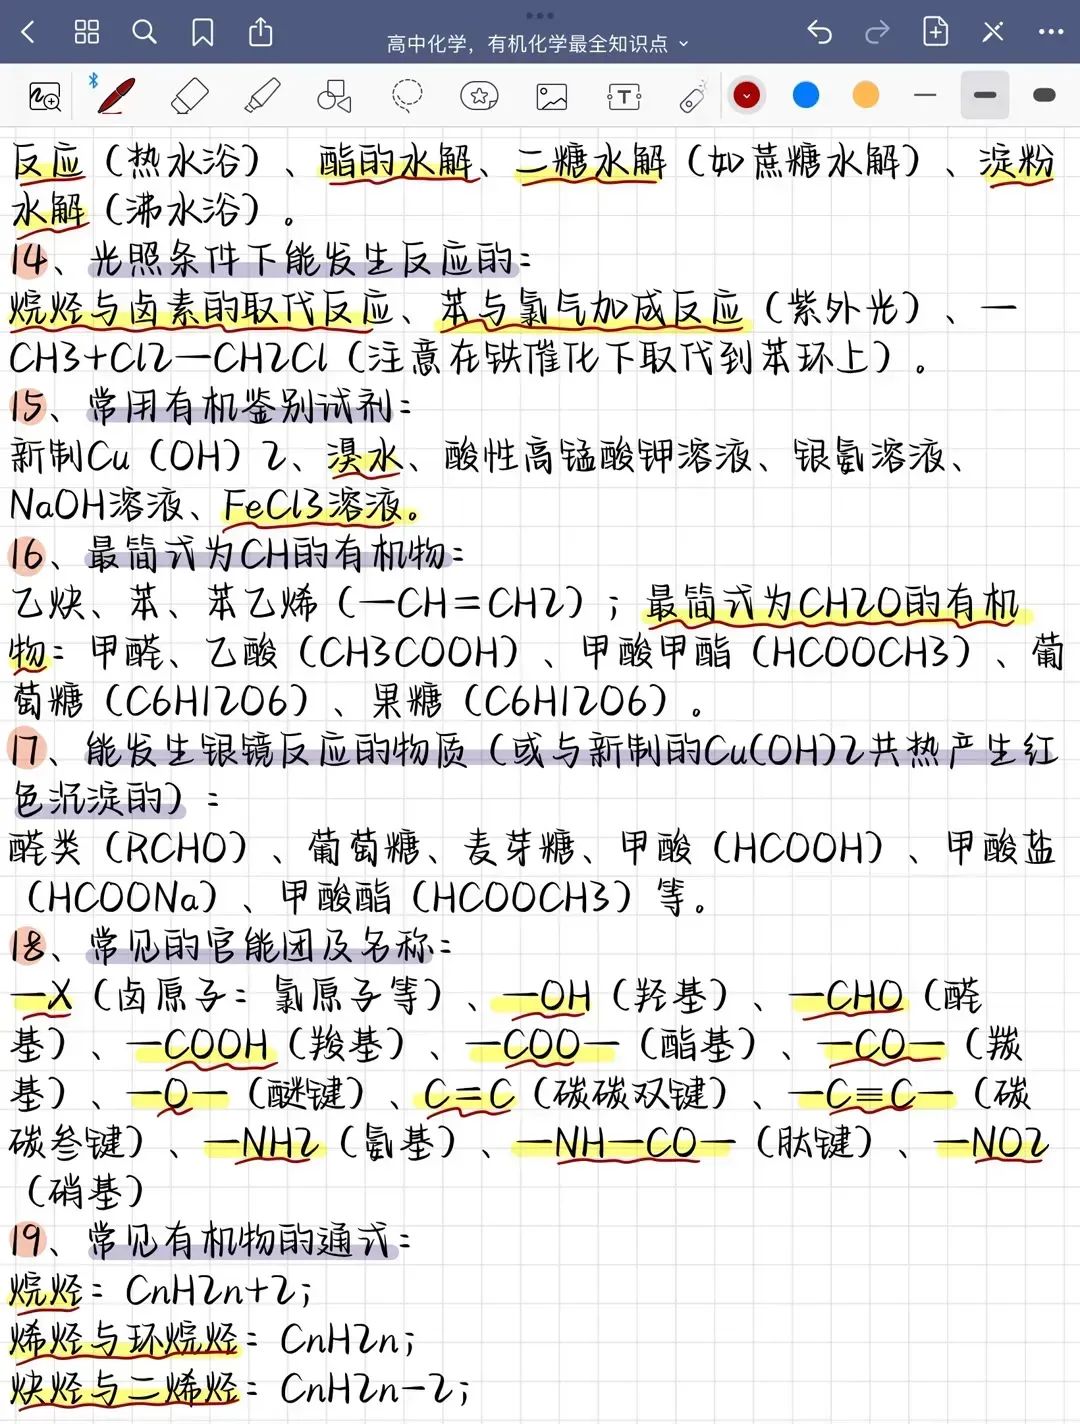 高中化学，有机化学最全知识点
T
反应（热水浴）、酯的水解、二糖水解（如蔗糖水解）、淀粉
水解（沸水浴）。
14、光照条件下能发生反应的：
烷烃与卤素的取代反应、苯与氯气加成反应（紫外光）、—
CH3+Cl2—CH2Cl（注意在铁催化下取代到苯环上）。
15、常用有机鉴别试剂：
新制Cu（OH）2、溴水、酸性高锰酸钾溶液、银氨溶液、
NaOH溶液、FeCl3溶液。
16、最简式为CH的有机物：
乙炔、苯、苯乙烯（—CH=CH2）；最简式为CH2O的有机
物：甲醛、乙酸（CH3COOH）、甲酸甲酯（HCOOCH3）、葡
萄糖（C6H12O6）、果糖（C6H12O6）。
17、能发生银镜反应的物质（或与新制的Cu(OH)2共热产生红
色沉淀的）：
醛类（RCHO）、葡萄糖、麦芽糖、甲酸（HCOOH）、甲酸盐
（HCOONa）、甲酸酯（HCOOCH3）等。
18、常见的官能团及名称：
—X（卤原子：氯原子等）、—OH（羟基）、—CHO（醛
基）、—COOH（羧基）、—COO—（酯基）、—CO—（羰
基）、—O—（醚键）、C=C（碳碳双键）、—C≡C—（碳
碳叁键）、—NH2（氨基）、—NH—CO—（肽键）、—NO2
（硝基）
19、常见有机物的通式：
烷烃：CnH2n+2；
烯烃与环烷烃：CnH2n；
炔烃与二烯烃：CnH2n-2；